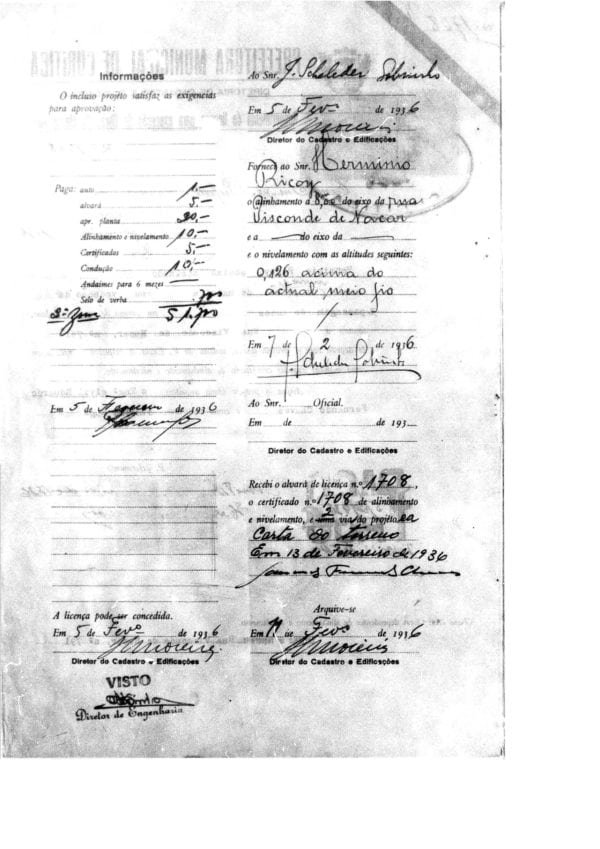 Informações
O incluso projéto satisfaz as exigencias
para aprovação:
Paga: auto 1.—
alvará 5.—
apr. planta 20.—
Alinhamento e nivelamento 10.—
Certificados 5.—
Condução 10.—
Andaimes para 6 mezes
Selo de verba
Em 5 de de 1936
A licença póde ser concedida.
Em 5 de Fevº de 1936
Diretor do Cadastro e Edificações
VISTO
Diretor de Engenharia
Ao Snr. J. Scheleder Sobrinho
Em 5 de Fevº de 1936
Diretor do Cadastro e Edificações
Forneci ao Snr. Herminio
Ricoy
o alinhamento a 8,50 do eixo da rua
Visconde de Nacar
e a — do eixo da —
e o nivelamento com as altitudes seguintes:
0,126 acima do
actual meio fio
Em 7 de 2 de 1936
J. Scheleder Sobrinho
Ao Snr. Oficial.
Em de de 193
Diretor do Cadastro e Edificações
Recebi o alvará de licença n.º 1708,
o certificado n.º 1708 de alinhamento
e nivelamento, e 2 via do projéto ea
Carta do terreno
Em 13 de Fevereiro de 1936
Arquive-se
Em de Fevº de 1936
Diretor do Cadastro e Edificações